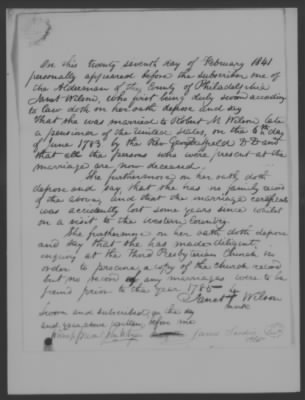 On this twenty seventh day of February 1841
personally appeared before the subscriber one of
the Alderman of the County of Philadelphia
Janet Wilson, who first being duly sworn according
to law doth on her oath depose and say
that she was married to Robert M. Wilson late
a pensioner of the United States, on the 6th day
of June 1783 by the Rev D D and
that all the persons who were present at the
marriage are now deceased.
She furthermore, on her oath doth
depose and say, that she has no family record
of the above, and that the marriage certificate
was accidently lost some years since whilst
on a visit to the western Country.
She furthermore on her oath doth depose
and say that she has made diligent
inquiry at the Third Presbyterian Church in
order to procure a copy of the church record
but no record of any marriages were to be
found prior to the year 1785
Janet Wilson
mark
Sworn and subscribed on the day
and year above written before me